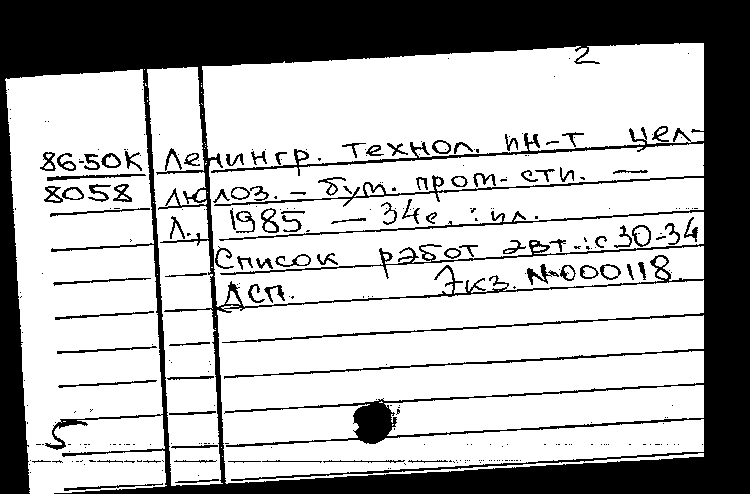 2
86-50К Ленингр. технол. ин-т цел-
8058 люлоз. - бум. пром-сти. —
Л., 1985. — 34с. : ил.
Список работ авт.: с 30-34
ДСП. Экз. №000118.
5